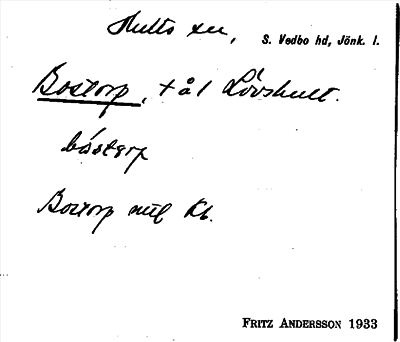 Hults sn, S. Vedbo hd, Jönk. l.
Bostorp, t å 1 Lövshult.
bóstorp
Bostorp mil Kb.
FRITZ ANDERSSON 1933